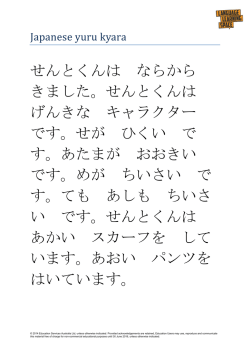 LANGUAGE
LEARNING
SPACE
Japanese yuru kyara
せんとくんは　ならから
きました。せんとくんは
げんきな　キャラクター
です。せが　ひくい　で
す。あたまが　おおきい
です。めが　ちいさい　で
す。ても　あしも　ちいさ
い　です。せんとくんは
あかい　スカーフを　して
います。あおい　パンツを
はいています。